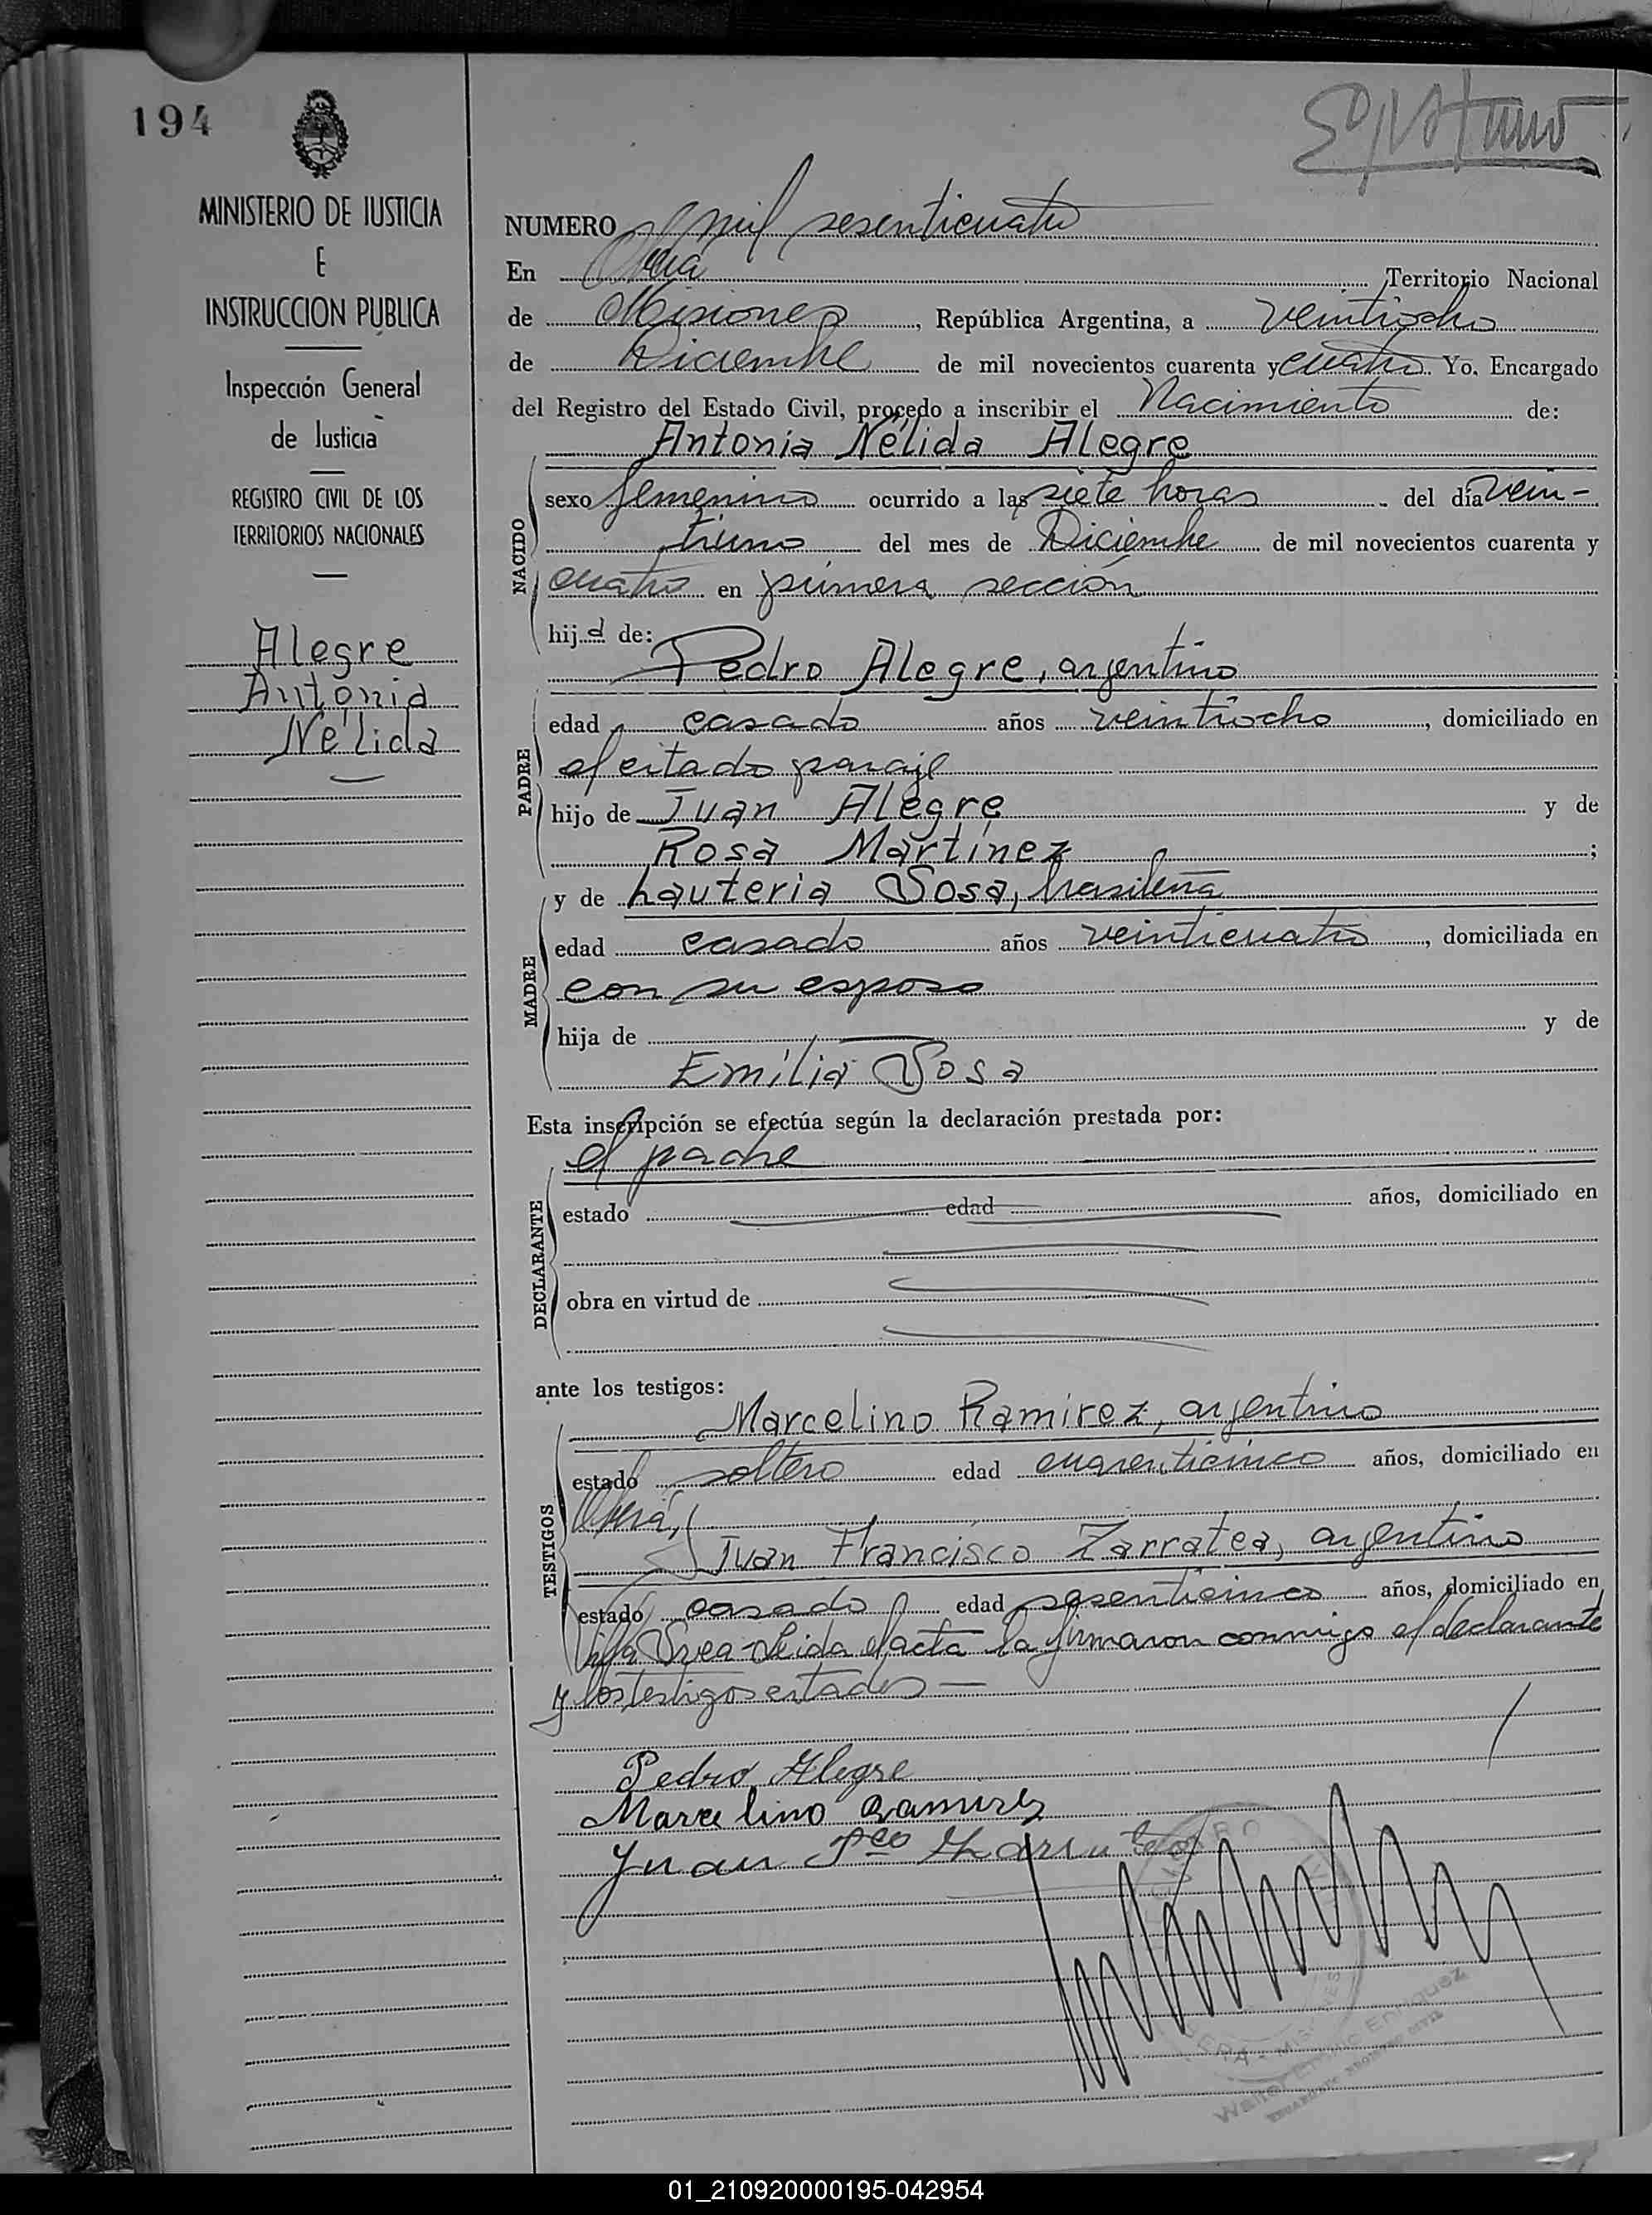 194
MINISTERIO DE JUSTICIA
E
INSTRUCCION PUBLICA
Inspección General
de Justicia
REGISTRO CIVIL DE LOS
TERRITORIOS NACIONALES
Alegre
Antonia
Nélida
NUMERO mil sesenticuatro
En Oberá Territorio Nacional
de Misiones, República Argentina, a veintiocho
de Diciembre de mil novecientos cuarenta y cuatro. Yo, Encargado
del Registro del Estado Civil, procedo a inscribir el Nacimiento de:
Antonia Nélida Alegre
NACIDO
sexo femenino ocurrido a las siete horas del día vein-
tiuno del mes de Diciembre de mil novecientos cuarenta y
cuatro en primera sección
hija de:
Pedro Alegre, argentino
PADRE
edad casado años veintiocho, domiciliado en
el citado paraje
hijo de Juan Alegre y de
Rosa Martínez;
y de Lauteria Sosa, brasileña
MADRE
edad casado años veinticuatro, domiciliada en
con su esposo
hija de y de
Emilia Sosa
Esta inscripción se efectúa según la declaración prestada por:
el padre
DECLARANTE
estado edad años, domiciliado en
obra en virtud de
ante los testigos:
Marcelino Ramirez, argentino
TESTIGOS
estado soltero edad cuarenticinco años, domiciliado en
Oberá,
Juan Francisco Zarratea, argentino
estado casado edad sesenticinco años, domiciliado en
Villa Svea-Leida el acta la firmaron conmigo el declarante
y los testigos citados—
Pedro Alegre
Marcelino Ramirez
Juan Fco
01_210920000195-042954